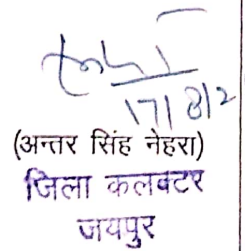 17/8/2
(अन्तर सिंह नेहरा)
जिला कलक्टर
जयपुर